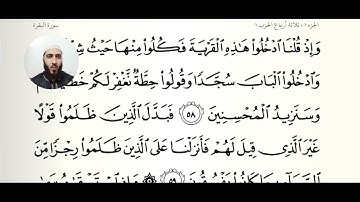 الجزء ١ ، ثلاثة أرباع الحزب ١
سورة البقرة
وَإِذْ قُلْنَا ٱدْخُلُوا۟ هَـٰذِهِ ٱلْقَرْيَةَ فَكُلُوا۟ مِنْهَا حَيْثُ
وَٱدْخُلُوا۟ ٱلْبَابَ سُجَّدًا وَقُولُوا۟ حِطَّةٌ نَّغْفِرْ لَكُمْ
وَسَنَزِيدُ ٱلْمُحْسِنِينَ ٥٨ فَبَدَّلَ ٱلَّذِينَ ظَلَمُوا۟ قَوْلًا
غَيْرَ ٱلَّذِى قِيلَ لَهُمْ فَأَنزَلْنَا عَلَى ٱلَّذِينَ ظَلَمُوا۟ رِجْزًا مِّنَ